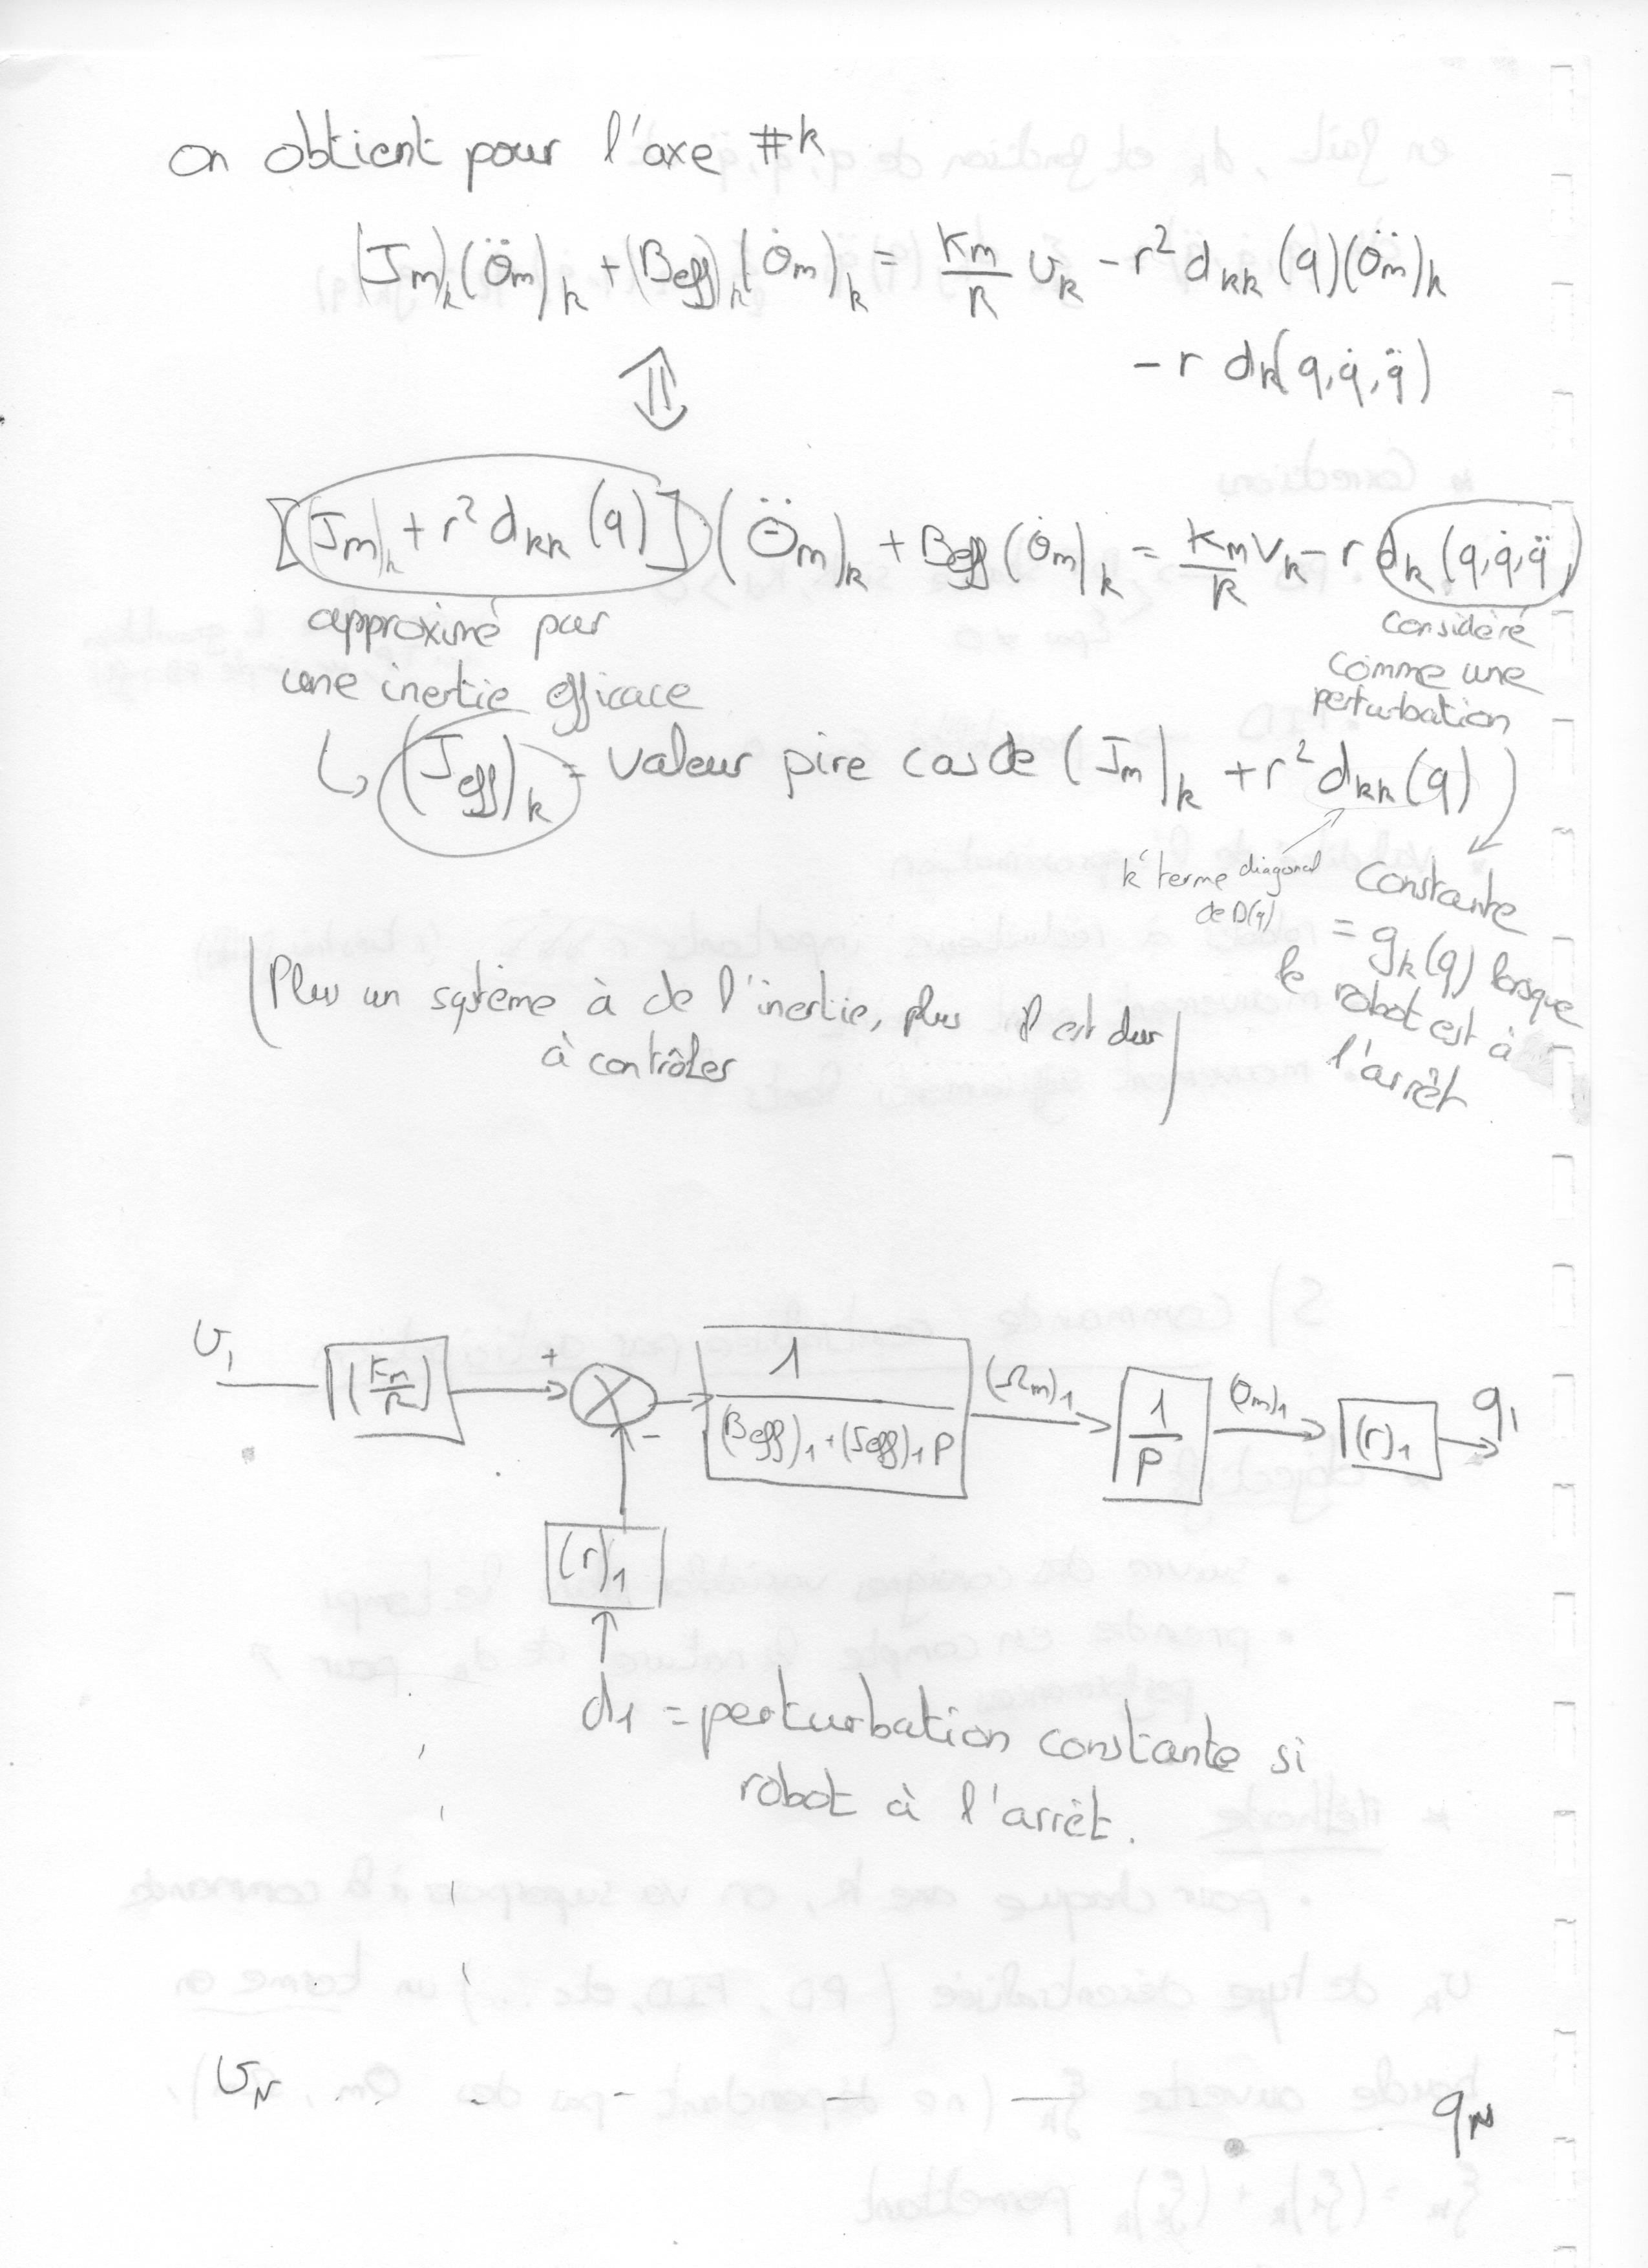 on obtient pour l'axe #k
(Jm)k (θ̈m)k + (Beff)k (θ̇m)k = Km/R Uk - r² dkk (q)(θ̈m)k
- r dk(q, q̇, q̈)
⇕
[(Jm)k + r² dkk (q)] (θ̈m)k + Beff (θ̇m)k = Km/R Vk - r dk (q, q̇, q̈)
approximé par
une inertie efficace
considéré
comme une
perturbation
↳ (Jeff)k = valeur pire cas de (Jm)k + r² dkk (q)
k° terme diagonal
de D(q)
constante
= gk(q) lorsque
le robot est à
l'arrêt
(Plus un système à de l'inertie, plus il est dur
à contrôler)
U1
(Km/R)
+
-
1
(Beff)1 + (Jeff)1 P
(Ωm)1
1/P
(θm)1
(r)1
q1
(r)1
d1 = perturbation constante si
robot à l'arrêt.
UN
qN